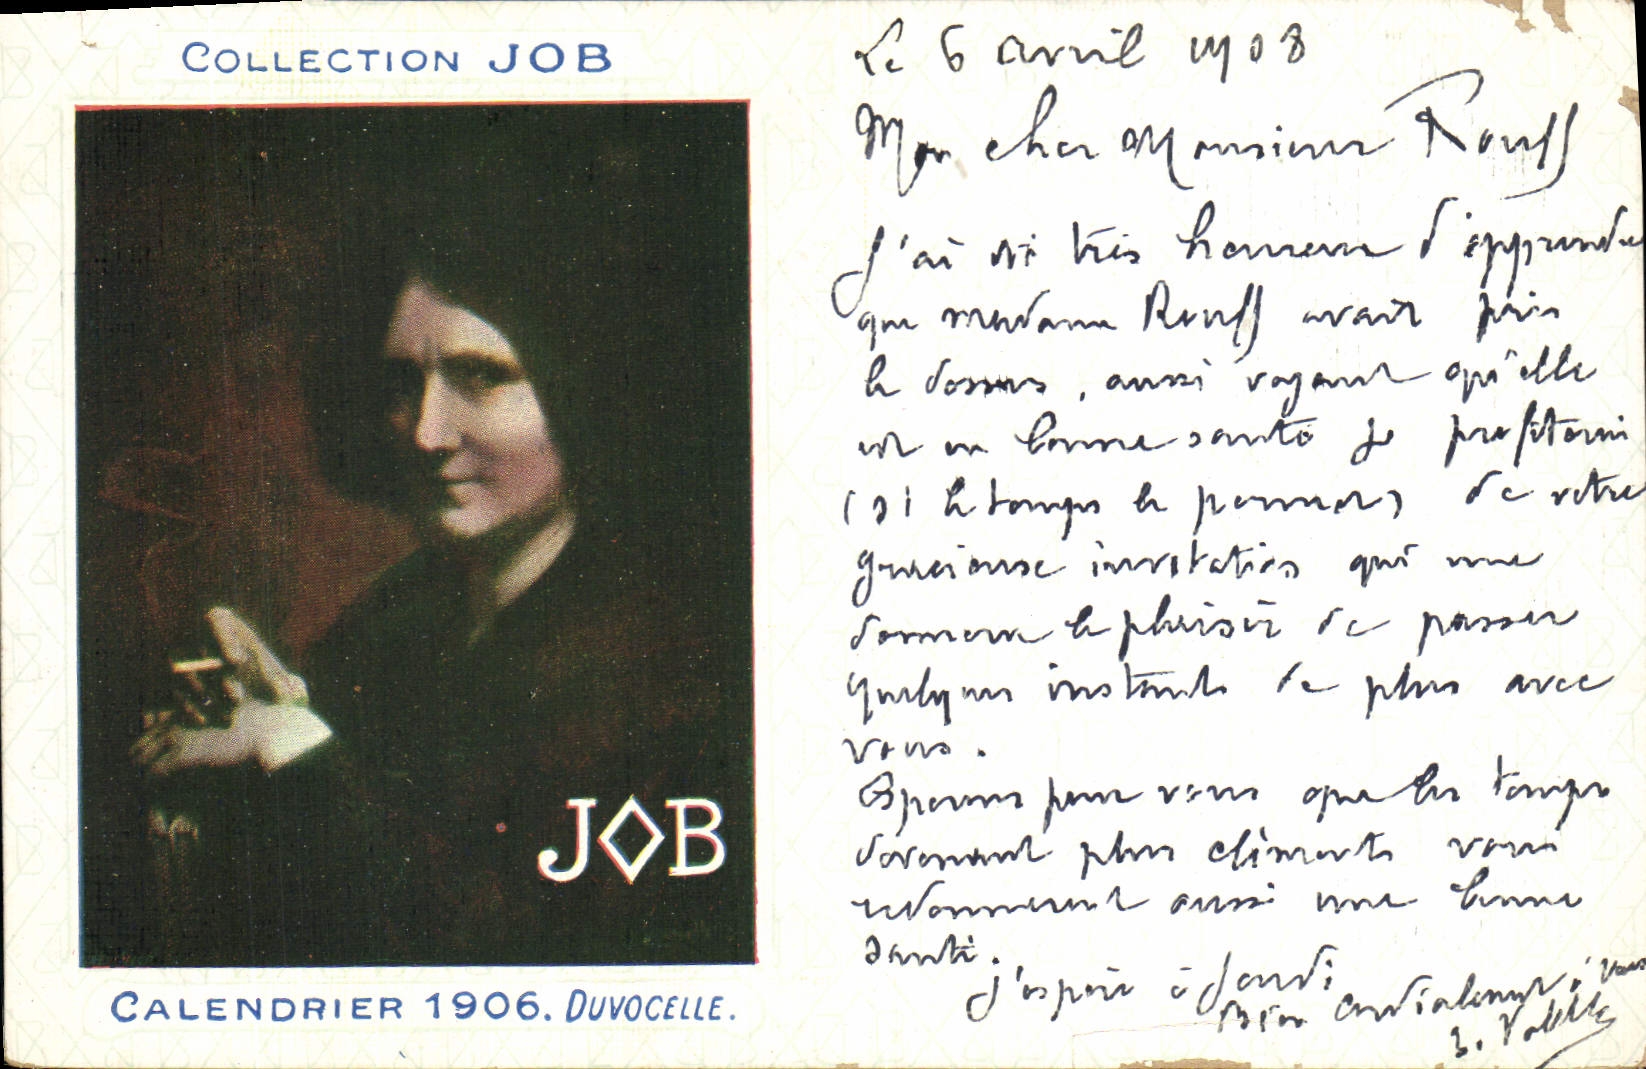 COLLECTION JOB
JOB
CALENDRIER 1906. DUVOCELLE.
Le 6 avril 1908
Mon cher Monsieur Rouff
J'ai été très heureux d'apprendre
que madame Rouff avait pris
le dessus, aussi voyant qu'elle
est en bonne santé je profiterai
(si le temps le permet) de votre
gracieuse invitation qui me
donnera le plaisir de passer
quelques instants de plus avec
vous.
Espérons pour vous que les temps
devenant plus cléments vous
redonneront aussi une bonne
santé.
J'espère à Jeudi
Bien cordialement à vous